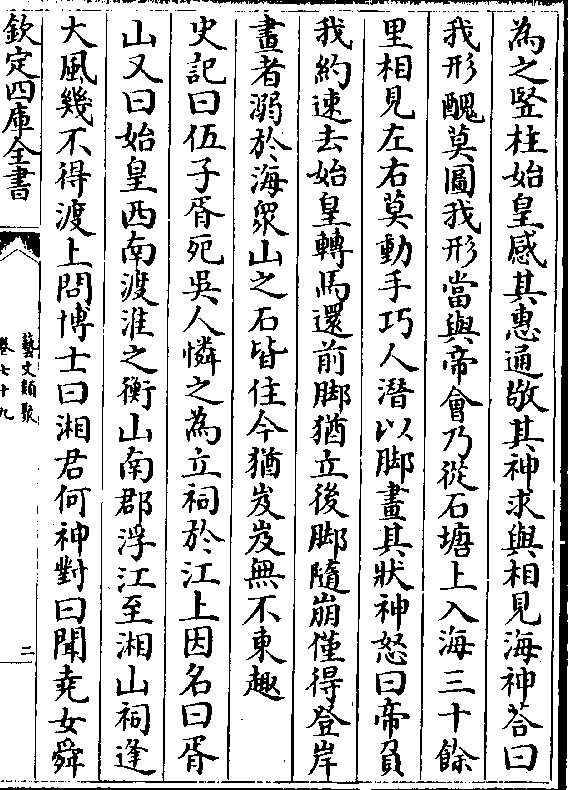 為之竖柱始皇感其惠通敬其神求與相見海神荅曰
我形醜莫圖我形當與帝會乃從石塘上入海三十餘
里相見左右莫動手巧人潛以脚畫其狀神怒曰帝負
我約速去始皇轉馬還前脚猶立後脚隨崩僅得登岸
畫者溺於海衆山之石皆住今猶岌岌無不東趣
史記曰伍子胥死吳人憐之為立祠於江上因名曰胥
山又曰始皇西南渡淮之衡山南郡浮江至湘山祠逢
大風幾不得渡上問博士曰湘君何神對曰聞堯女舜
欽定四庫全書
藝文類聚
卷七十九
二